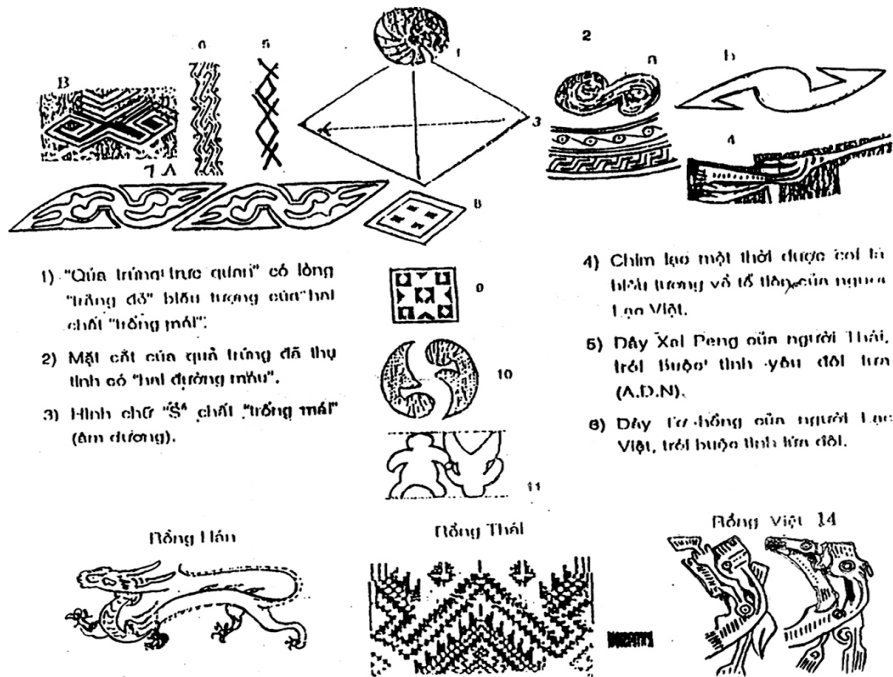 6
5
1
2
a
b
B
3
4
7 A
8
1) "Qủa trứng trực quan" có lòng
"trắng đỏ" biểu tượng của "hai
chất "trống mái".
2) Mặt cắt của quả trứng đã thụ
tinh có "hai đường máu".
3) Hình chữ "S" chất "trống mái"
(âm dương).
9
10
11
4) Chim lạc một thời được coi là
biểu tượng về tổ tiên của người
Lạc Việt.
5) Dây Xai Peng của người Thái,
trói buộc tình yêu đôi lứa
(A.D.N).
6) Dây Tơ hồng của người Lạc
Việt, trói buộc tình lứa đôi.
Rồng Hán
Rồng Thái
Rồng Việt 14